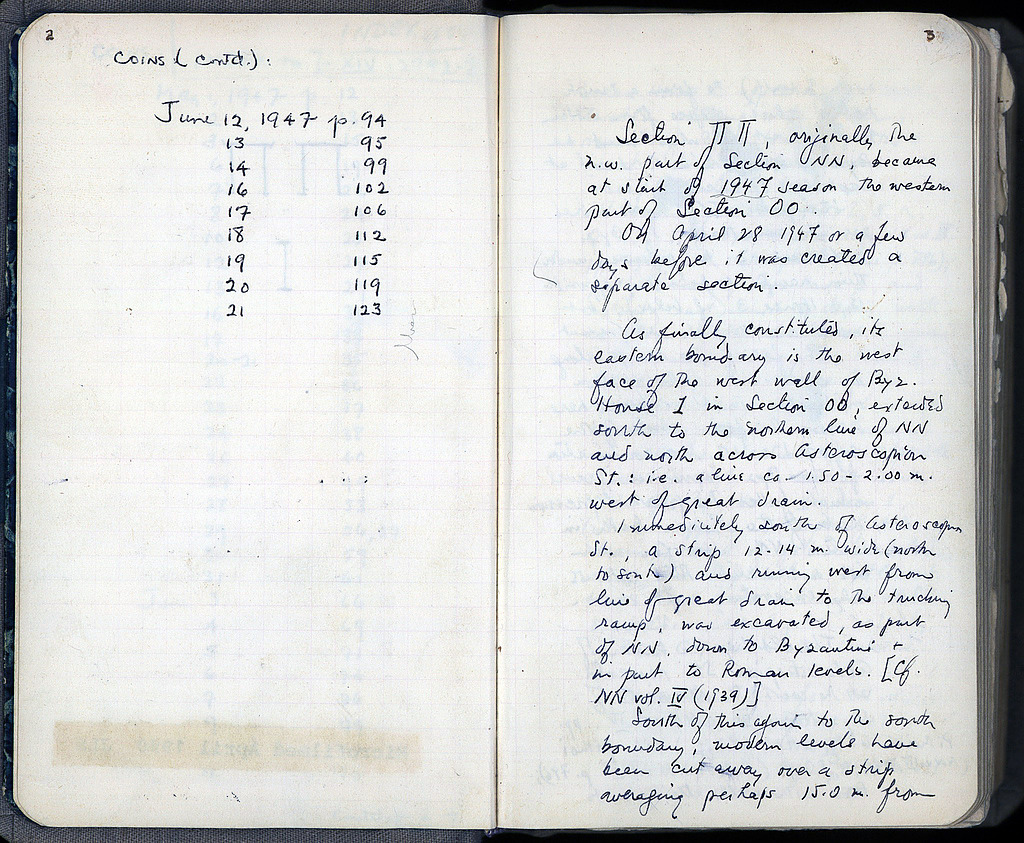 2
COINS (contd.):
June 12, 1947 p. 94
13 95
14 99
16 102
17 106
18 112
19 115
20 119
21 123
3
Section ΠΠ, originally the
n.w. part of Section NN, became
at start of 1947 season the western
part of Section OO.
On April 28 1947 or a few
days before it was created a
separate section.
As finally constituted, its
eastern boundary is the west
face of the west wall of Byz.
House I in Section OO, extended
south to the northern line of NN
and north across Asteroscopion
St.: i.e. a line ca. 1.50 - 2.00 m.
west of great drain.
Immediately south of Asteroscopion
St., a strip 12-14 m. wide (north
to south) and running west from
line of great drain to the trucking
ramp, was excavated, as part
of NN, down to Byzantine +
in part to Roman levels. [Cf.
NN vol. IV (1939)]
South of this again to the south
boundary, modern levels have
been cut away over a strip
averaging perhaps 15.0 m. from